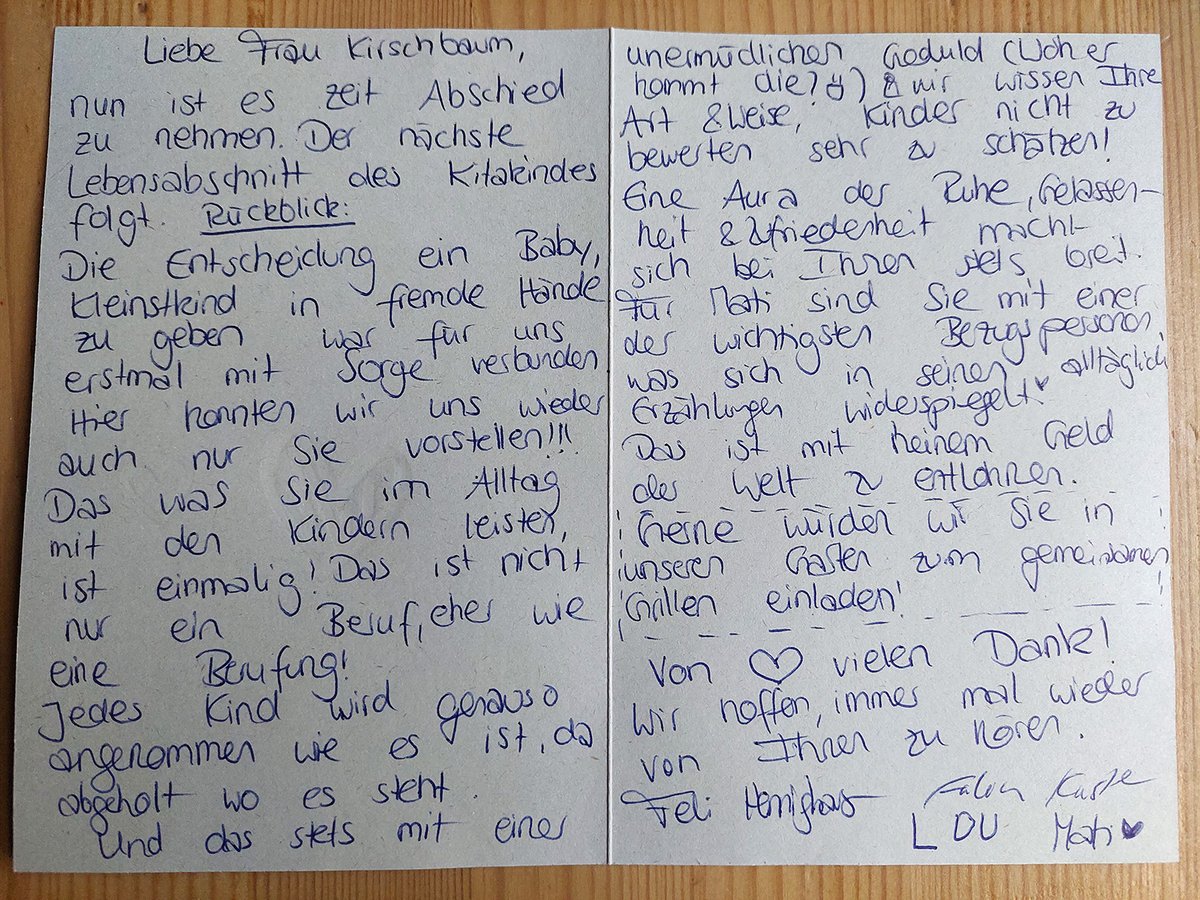 Liebe Frau Kirschbaum,
nun ist es zeit Abschied
zu nehmen. Der nächste
Lebensabschnitt des Kitakindes
folgt. Rückblick:
Die Entscheidung ein Baby,
Kleinstkind in fremde Hände
zu geben war für uns
erstmal mit Sorge verbunden
Hier konnten wir uns wieder
auch nur Sie vorstellen!!!
Das was Sie im Alltag
mit den Kindern leisten,
ist einmalig! Das ist nicht
nur ein Beruf, eher wie
eine Berufung!
Jedes Kind wird genauso
angenommen wie es ist, da
abgeholt wo es steht.
Und das stets mit einer
unermüdlichen Geduld (Woher
kommt die? ) & wir wissen Ihre
Art & Weise, Kinder nicht zu
bewerten sehr zu schätzen!
Eine Aura der Ruhe, Gelassen-
heit & Zufriedenheit macht
sich bei Ihnen stets breit.
Für Mati sind Sie mit einer
der wichtigsten Bezugspersonen,
was sich in seinen alltäglich
Erzählungen widerspiegelt ♥
Das ist mit keinem Geld
der Welt zu entlohnen.
Gerne würden wir Sie in
unseren Garten zum gemeinsamen
Grillen einladen!
Von ♡ vielen Dank!
Wir hoffen, immer mal wieder
von Ihnen zu hören.
Feli
Mati ♥